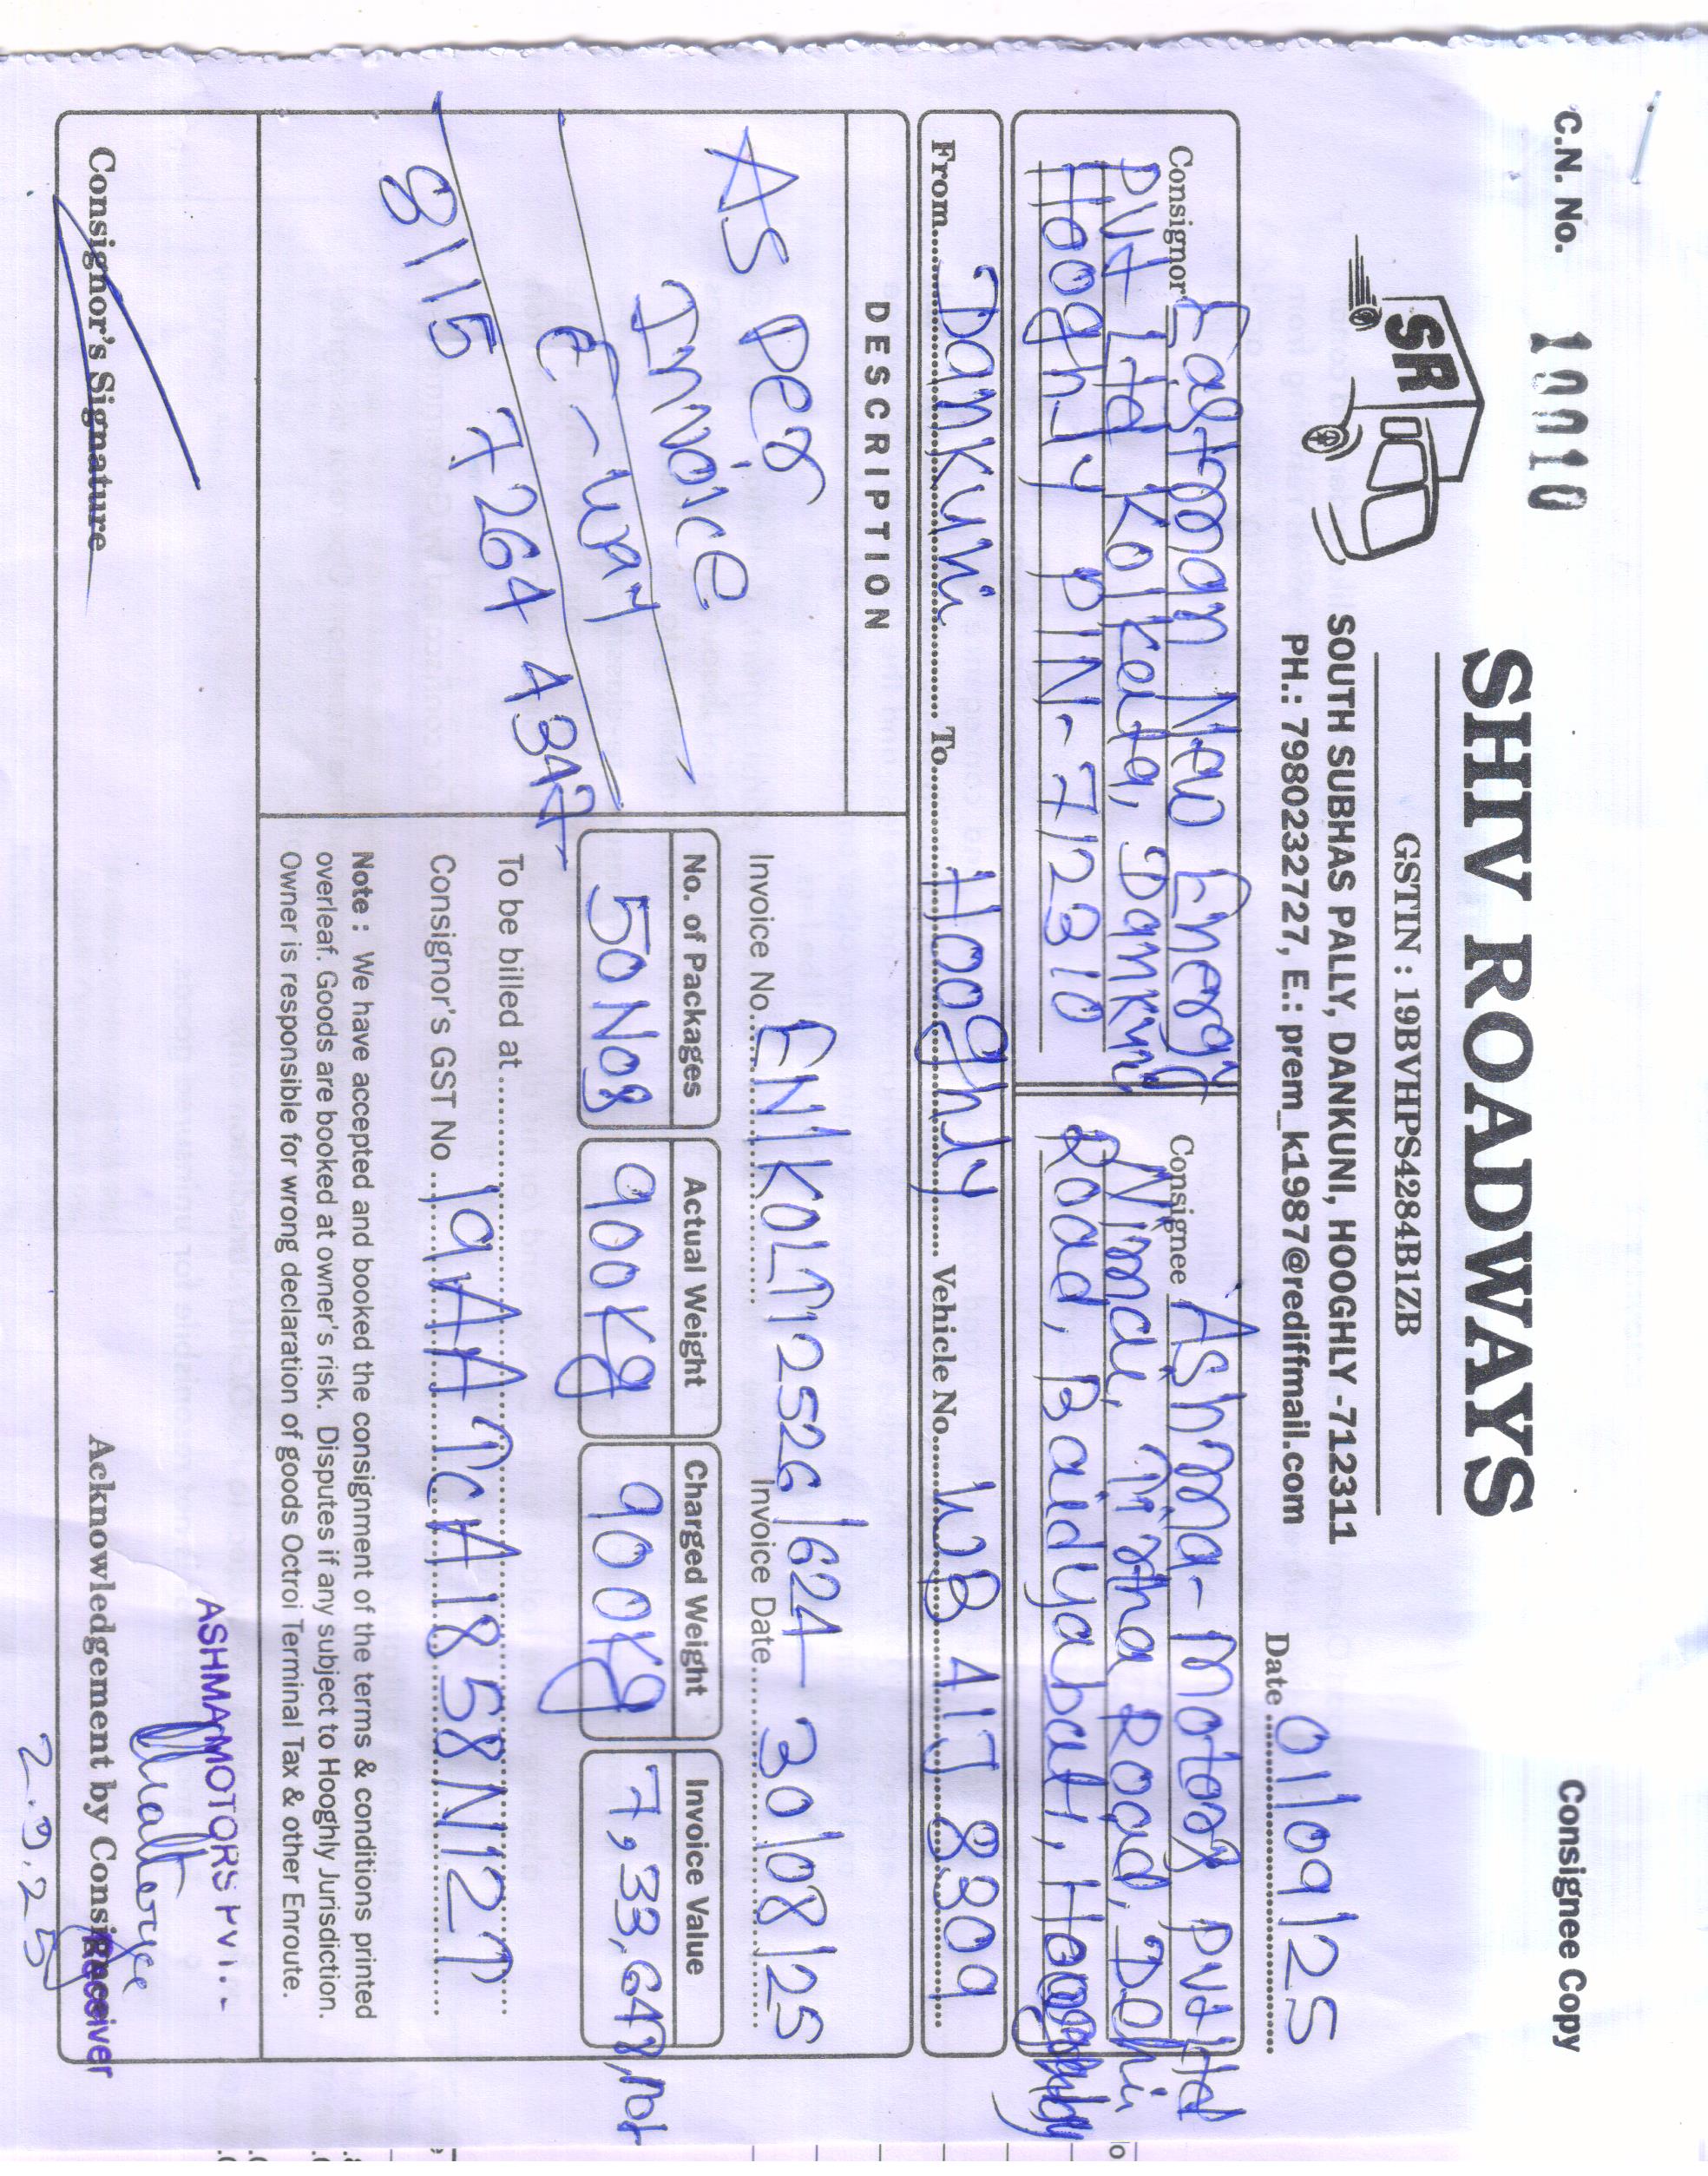 C.N. No. 10010
Consignee Copy
SR
SHIV ROADWAYS
GSTIN : 19BVHPS4284B1ZB
SOUTH SUBHAS PALLY, DANKUNI, HOOGHLY -712311
PH.: 7980232727, E.: prem_k1987@rediffmail.com
Date 01/09/25
Consignor Eastman New Energy
Pvt Ltd Kolkata, Dankuni
Hooghly PIN-712310
Consignee Ashma Motors Pvt Ltd
Nimai Tirtha Road, Delhi
Road, Baidyabati, Hooghly
From Dankuni To Hooghly Vehicle No. WB 41J 8309
DESCRIPTION
As per
Invoice
E-way
8115 7264 4347
Invoice No. EN/KOLT/2526/624 Invoice Date 30/08/25
No. of Packages Actual Weight Charged Weight Invoice Value
50 Nos 900Kg 900Kg 7,33,648
To be billed at
Consignor's GST No 19AATCA1858N1ZT
Note : We have accepted and booked the consignment of the terms & conditions printed
overleaf. Goods are booked at owner's risk. Disputes if any subject to Hooghly Jurisdiction.
Owner is responsible for wrong declaration of goods Octroi Terminal Tax & other Enroute.
ASHMA MOTORS PVT.
Consignor's Signature
Acknowledgement by Consignee
Receiver
2.9.25